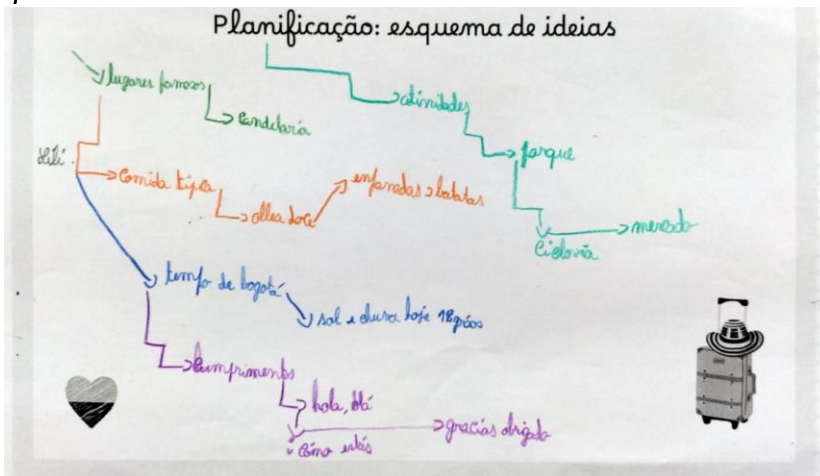 Planificação: esquema de ideias
lugares famosos
Candelária
atividades
parque
Ciclovia
mercado
Lili
Comida típica
doce
empanadas
batatas
tempo de bogotá
sol e chuva hoje 18 graos
Cumprimentos
hola, olá
Cómo estás
gracias obrigado